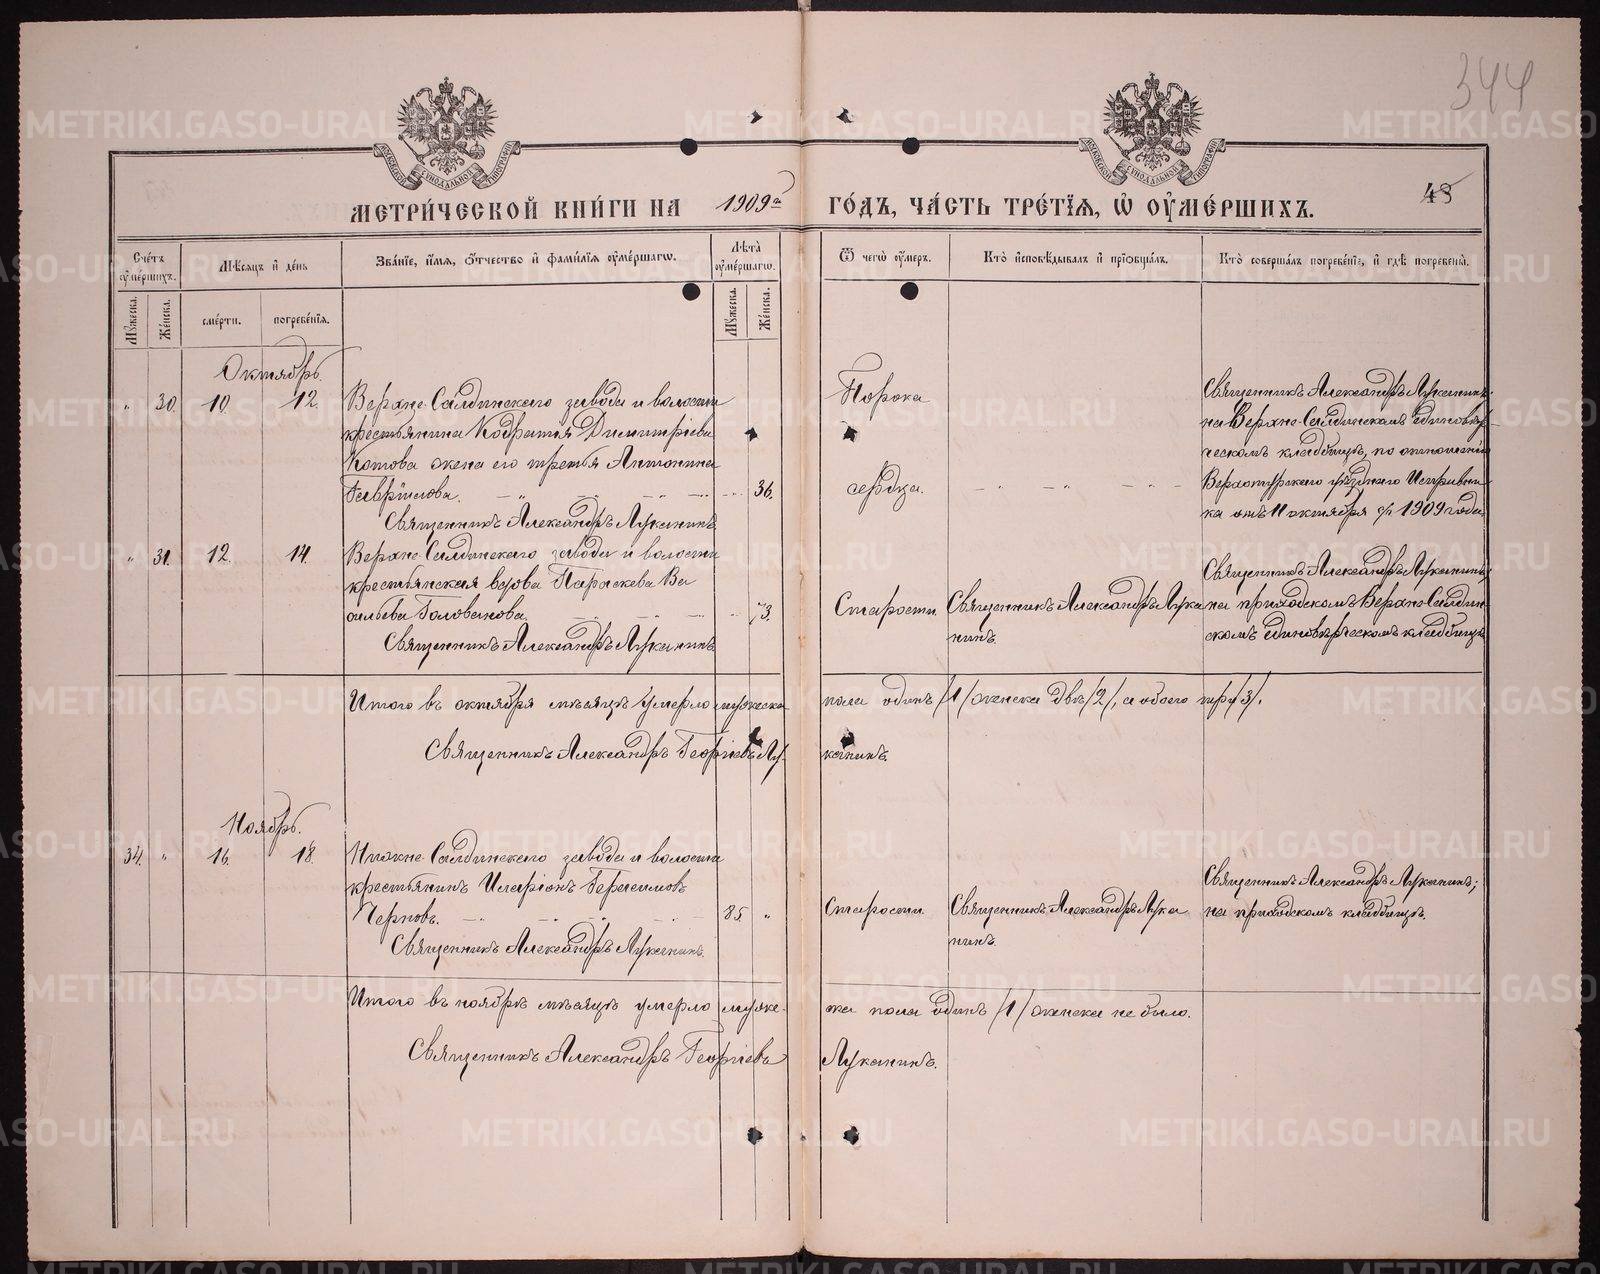 344
МОСКОВСКОЙ СѴНОДАЛЬНОЙ ТИПОГРАФІИ
МОСКОВСКОЙ СѴНОДАЛЬНОЙ ТИПОГРАФІИ
МЕТРИ́ЧЕСКОЙ КНИ́ГИ НА 1909й ГО́ДЪ, ЧА́СТЬ ТРЕ́ТІѦ, Ѡ҆ ОУ҆МЕ́РШИХЪ.
43
Сче́тъ оу҆ме́ршихъ.
Мѣ́сѧцъ и҆ де́нь
Зва́нїе, и҆́мѧ, ѻ҆́тчество и҆ фами́лїѧ оу҆ме́ршагѡ.
Лѣта̀ оу҆ме́ршагѡ.
Ѿ чегѡ̀ оу҆́меръ.
Кто̀ и҆сповѣ́дывалъ и҆ прїѡбща́лъ.
Кто̀ соверша́лъ погребе́нїе, и҆ гдѣ̀ погребены̀.
Мꙋ́жеска.
Же́нска.
сме́рти.
погребе́нїѧ.
Мꙋ́жеска.
Же́нска.
Октябрь.
" 30. 10. 12. Верхне-Салдинскаго завода и волости
крестьянина Кодратія Димитріева
Котова жена его третья Антонина
Гавріилова. 36.
Священникъ Александръ Луканинъ
Порока
сердца.
Священникъ Александръ Луканинъ
на Верхно-Салдинскомъ единовѣр
ческомъ кладбищѣ, по отношенію
Верхотурскаго уѣзднаго Исправни
ка отъ 11 октября с/г 1909 года
" 31. 12. 14. Верхне-Салдинскаго завода и волости
крестьянская вдова Параскева Ва
сильева Голованова. 73.
Священникъ Александръ Луканинъ
Старости.
Священникъ Александръ Лука
нинъ.
Священникъ Александръ Луканинъ;
на приходскомъ Верхно-Салдин
скомъ единовѣрческомъ кладбищѣ
Итого въ октябрѣ мѣсяцѣ умерло мужеска пола одинъ /1/ женска двѣ /2/, а обоего три /3/.
Священникъ Александръ Георгіевъ Лу- канинъ.
Ноябрь.
34. " 16. 18. Нижне-Салдинскаго завода и волости
крестьянинъ Иларіонъ Герасимовъ
Черновъ. 85 "
Священникъ Александръ Луканинъ.
Старости.
Священникъ Александръ Лука
нинъ.
Священникъ Александръ Луканинъ;
на приходскомъ кладбищѣ.
Итого въ ноябрѣ мѣсяцѣ умерло муже- ска пола одинъ /1/ женска не было.
Священникъ Александръ Георгіевъ Луканинъ.
METRIKI.GASO-URAL.RU